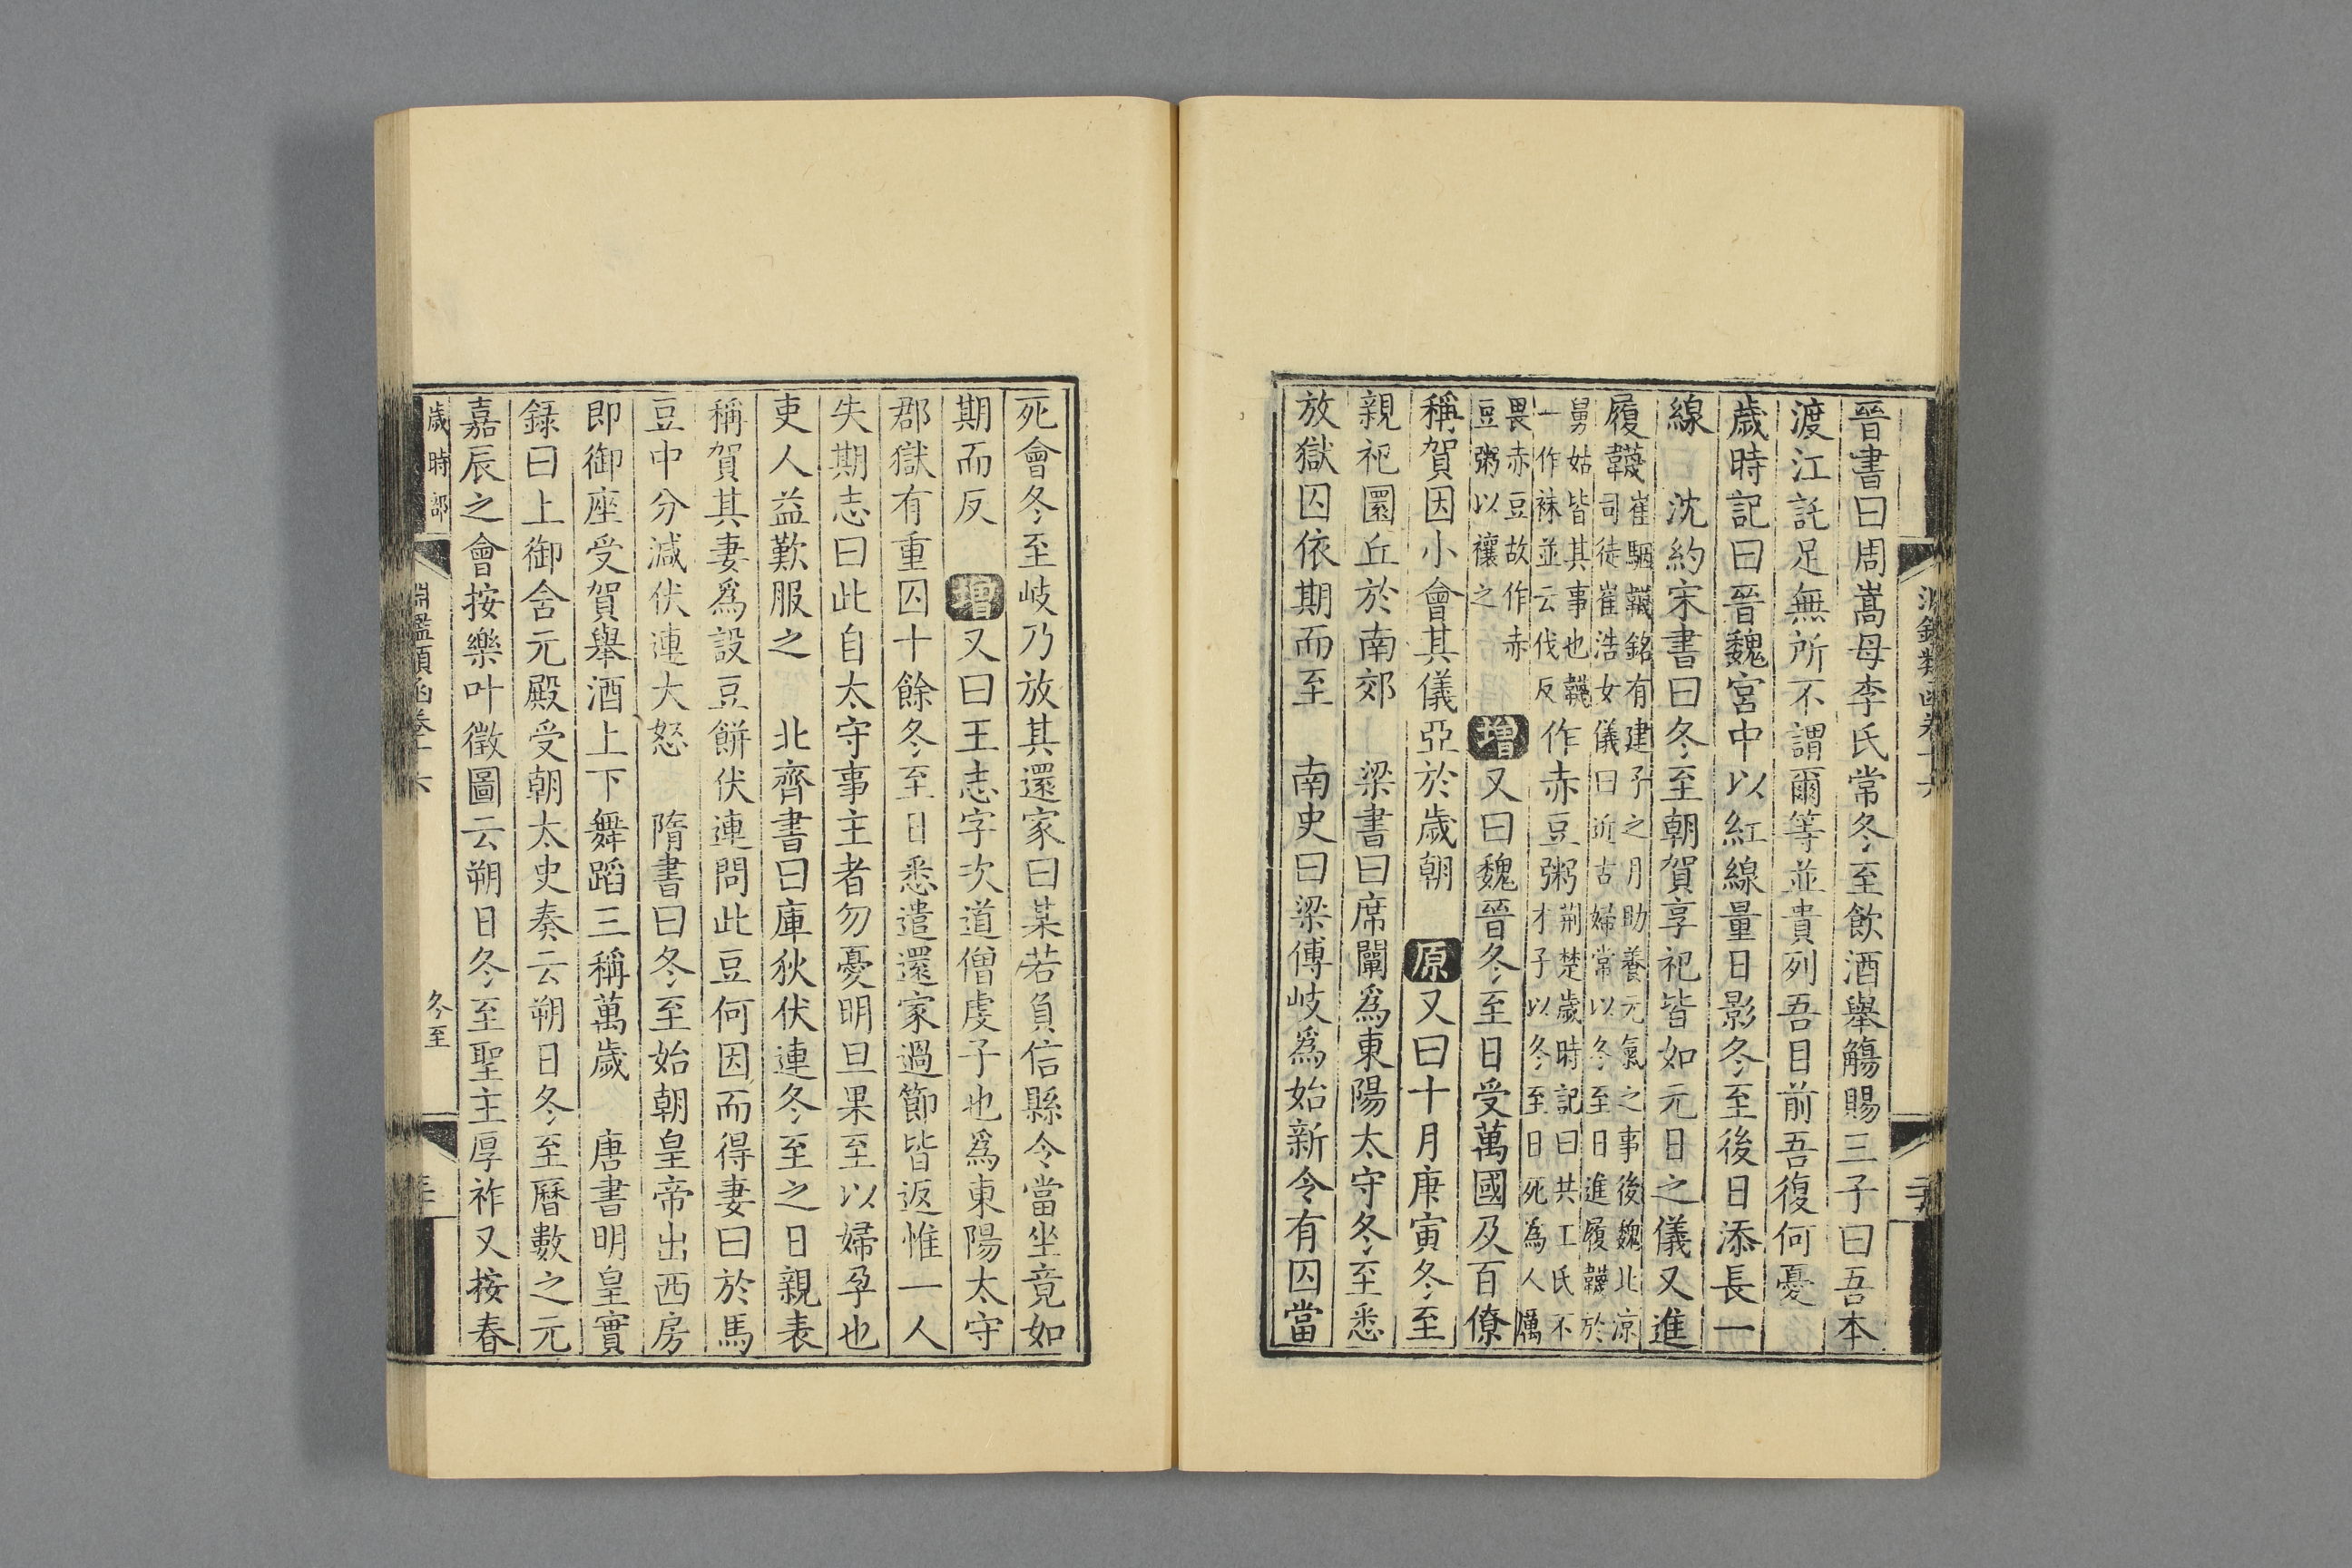 晉書曰周嵩母李氏常冬至飲酒舉觴賜三子曰吾本
渡江託足無所不謂爾等並貴列吾目前吾復何憂
歲時記曰晉魏宮中以紅線量日影冬至後日添長一
線　沈約宋書曰冬至朝賀享祀皆如元日之儀又進
履韈崔駰韈銘有建子之月助養元氣之事後魏北涼
司徒崔浩女儀曰近古婦常以冬至日進履韈於
舅姑皆其事也韈
一作袜並云伐反
作赤豆粥荆楚歲時記曰共工氏不
才子以冬至日死爲人厲
畏赤豆故作赤
豆粥以禳之
增又曰魏晉冬至日受萬國及百僚
稱賀因小會其儀亞於歲朝　原又曰十月庚寅冬至
親祀圜丘於南郊　梁書曰席闡爲東陽太守冬至悉
放獄囚依期而至　南史曰梁傅岐爲始新令有囚當
死會冬至岐乃放其還家曰某若負信縣令當坐竟如
期而反　增又曰王志字次道僧虔子也爲東陽太守
郡獄有重囚十餘冬至日悉遣還家過節皆返惟一人
失期志曰此自太守事主者勿憂明旦果至以婦孕也
吏人益歎服之　北齊書曰庫狄伏連冬至之日親表
稱賀其妻爲設豆餅伏連問此豆何因而得妻曰於馬
豆中分減伏連大怒　隋書曰冬至始朝皇帝出西房
即御座受賀舉酒上下舞蹈三稱萬歲　唐書明皇實
録曰上御含元殿受朝太史奏云朔日冬至曆數之元
嘉辰之會按樂叶徵圖云朔日冬至聖主厚祚又按春
歲時部
淵鑑類函卷十六
冬至